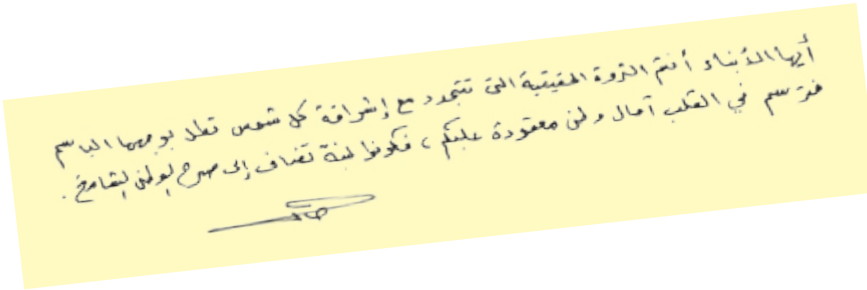 أيها الأبناء أنتم الثروة الحقيقية التي تتجدد مع إشراقة كل شمس تطل بوجهها الباسم
فترسم في القلب آمال وطن معقودة عليكم ، فكونوا لبنة تضاف إلى صرح الوطن الشامخ .